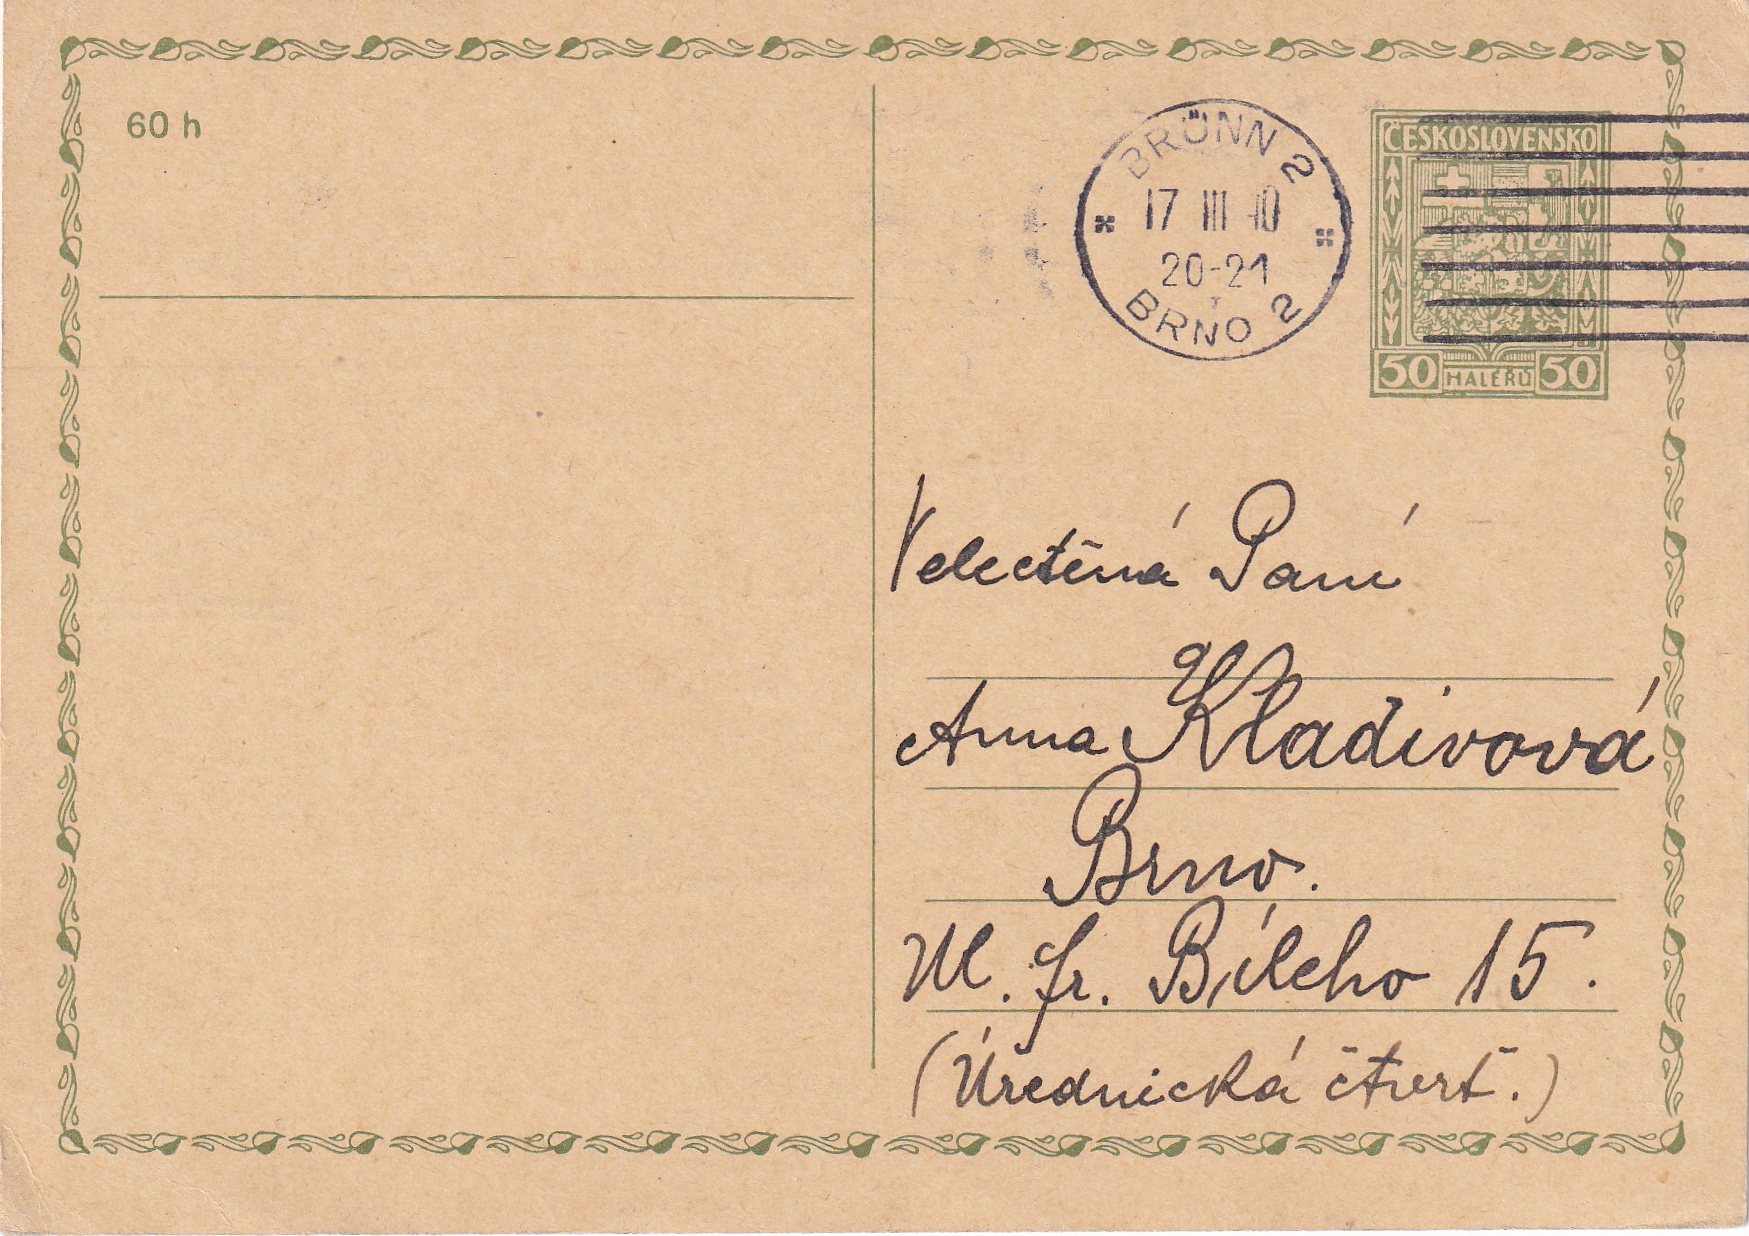 60 h
BRÜNN 2
17 III 40
20-21
BRNO 2
ČESKOSLOVENSKO
50 HALÉRŮ 50
Velectěná Paní
Anna Kladivová
Brno.
Ul. fr. Bílého 15.
(Úřednická čtvrť.)